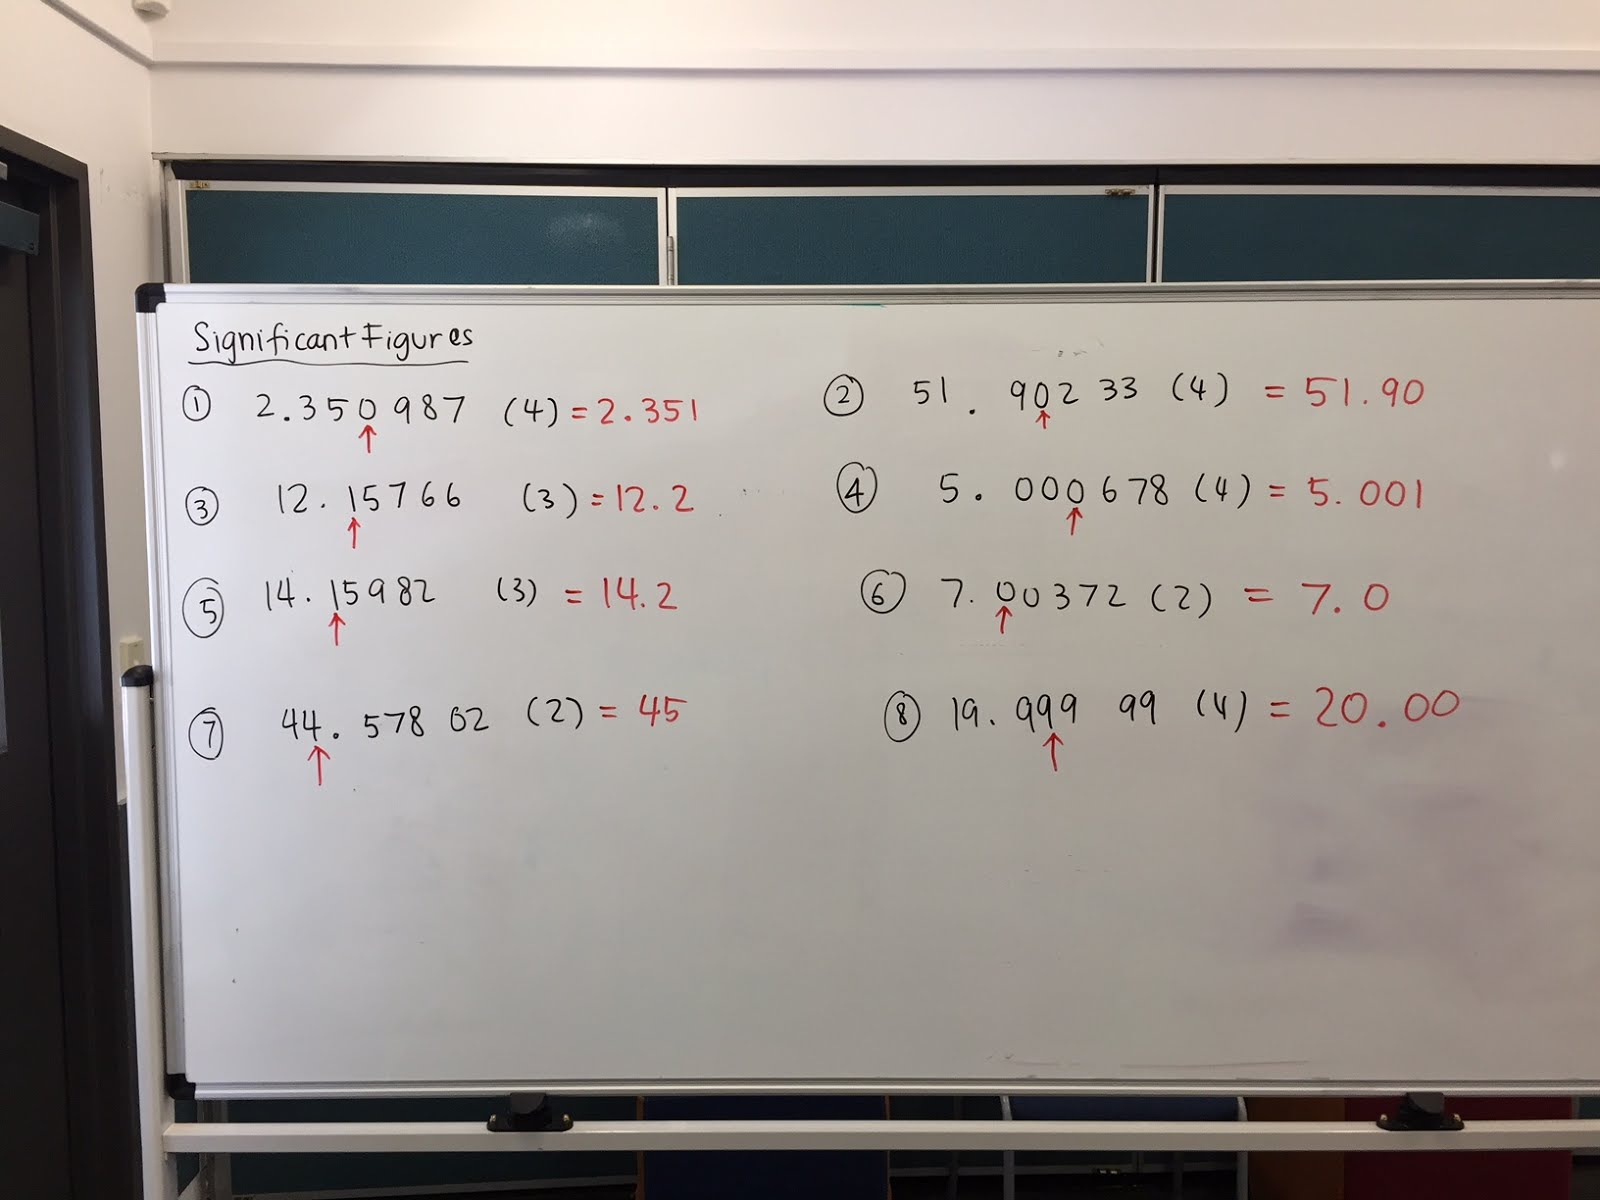 Significant Figures
① 2.350987 (4) = 2.351
② 51.90233 (4) = 51.90
③ 12.15766 (3) = 12.2
④ 5.000678 (4) = 5.001
⑤ 14.15982 (3) = 14.2
⑥ 7.00372 (2) = 7.0
⑦ 44.57802 (2) = 45
⑧ 19.99999 (4) = 20.00